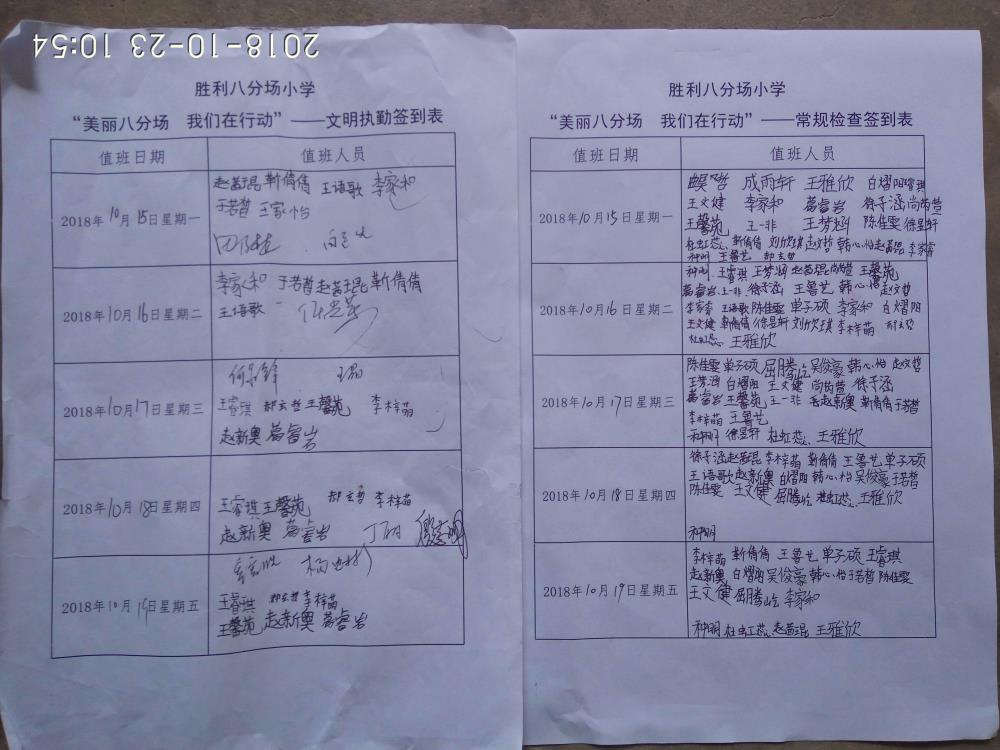 2018-10-23 10:54
胜利八分场小学
“美丽八分场 我们在行动”——文明执勤签到表
值班日期 值班人员
2018年10月15日星期一
赵茜琨 靳倩倩 王语歌 李家和
于若哲 王家怡
2018年10月16日星期二
李家和 于若哲 赵茜琨 靳倩倩
王语歌
2018年10月17日星期三
王睿琪 郝玄哲 王馨苑 李梓萌
赵新奥 葛睿岩
2018年10月18日星期四
王睿琪 王馨苑 郝玄哲 李梓萌
赵新奥 葛睿岩
2018年10月19日星期五
王睿琪 郝玄哲 李梓萌
王馨苑 赵新奥 葛睿岩
胜利八分场小学
“美丽八分场 我们在行动”——常规检查签到表
值班日期 值班人员
2018年10月15日星期一
成雨轩 王雅欣 白熠阳
王文健 李家和 葛睿岩 徐子涵 尚尚萱
王馨苑 王一非 王梦涵 陈佳雯 徐昱轩
杜虹蕊、靳倩倩 刘欣琪 赵文哲 韩心怡 赵茜琨 李家睿
种明 王鲁艺 郝玄哲
2018年10月16日星期二
种明 王睿琪 王梦涵 赵茜琨 尚尚萱 王馨苑
葛睿岩 王一非 徐子涵 王鲁艺 韩心怡 赵文哲
李家睿 王语歌 陈佳雯 单子硕 李家和 白熠阳
王文健 靳倩倩 徐昱轩 刘欣琪 李梓萌 郝玄哲
杜虹蕊、王雅欣
2018年10月17日星期三
陈佳雯 单子硕 屈腾屹 吴俊豪 韩心怡 赵文哲
王梦涵 白熠阳 王文健 尚尚萱 徐子涵
葛睿岩 王馨苑 王一非 赵新奥 靳倩倩 于若哲
李梓萌 王鲁艺
种明 徐昱轩 杜虹蕊、王雅欣
2018年10月18日星期四
徐子涵 赵茜琨 李梓萌 靳倩倩 王鲁艺 单子硕
王语歌 赵新奥 白熠阳 韩心怡 吴俊豪 于若哲
陈佳雯 王文健 屈腾屹 杜虹蕊、王雅欣
种明
2018年10月19日星期五
李梓萌 靳倩倩 王鲁艺 单子硕 王睿琪
赵新奥 白熠阳 吴俊豪 韩心怡 于若哲 陈佳雯
王文健 屈腾屹 李家和
种明 杜虹蕊、赵茜琨 王雅欣